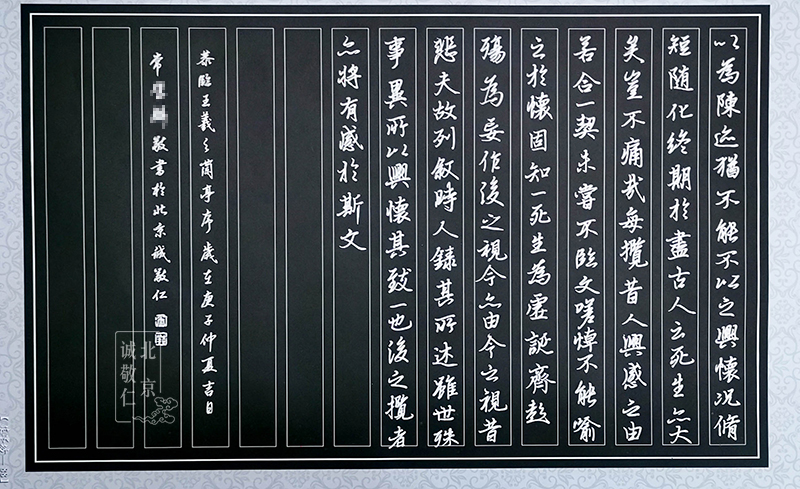 以為陳迹猶不能不以之興懷況脩
短隨化終期於盡古人云死生亦大
矣豈不痛哉每攬昔人興感之由
若合一契未嘗不臨文嗟悼不能喻
之於懷固知一死生為虛誕齊彭
殤為妄作後之視今亦由今之視昔
悲夫故列敘時人錄其所述雖世殊
事異所以興懷其致一也後之攬者
亦將有感於斯文
恭臨王羲之蘭亭序歲在庚子仲夏吉日
常敬書於北京誠敬仁
北京
诚敬仁